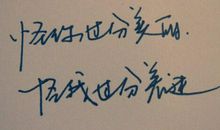 怪你过分美丽
怪我过分着迷